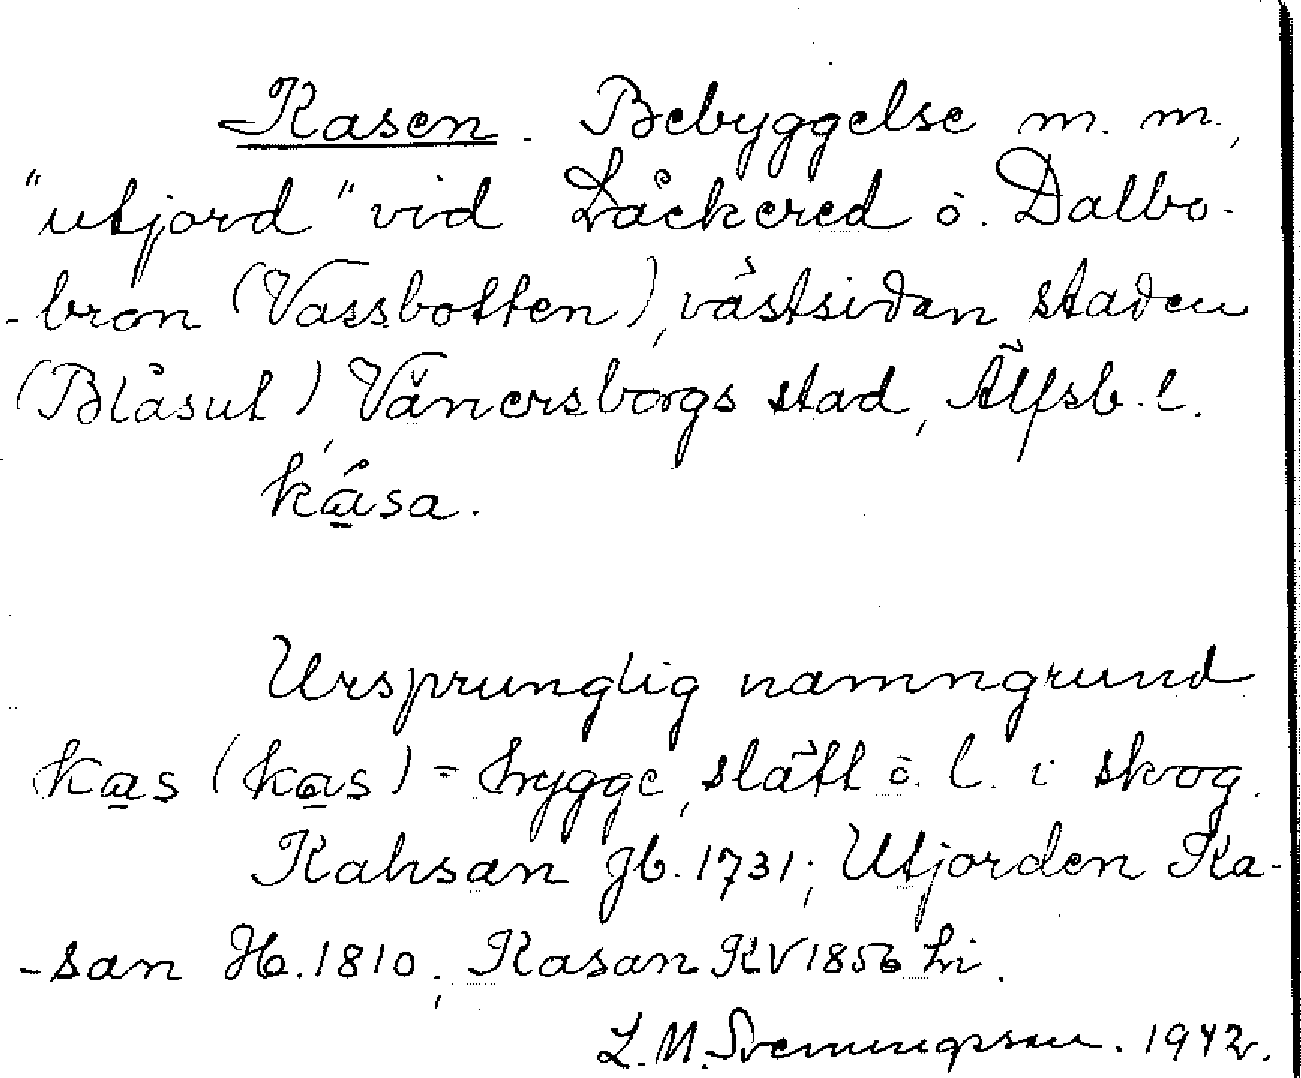 Kasen. Bebyggelse m. m.,
"utjord" vid Låckered o. Dalbo-
-bron (Vassbotten), västsidan staden
(Blåsut) Vänersborgs stad, Älfsb. l.
ká̱sa.
Ursprunglig namngrund
ka̱s (ka̱s) = hygge, slått o. l. i skog.
Kahsan Jb. 1731; Utjorden Ka-
-san Hb. 1810; Kasan KV 1856
L. M. Svenungsson. 1942.